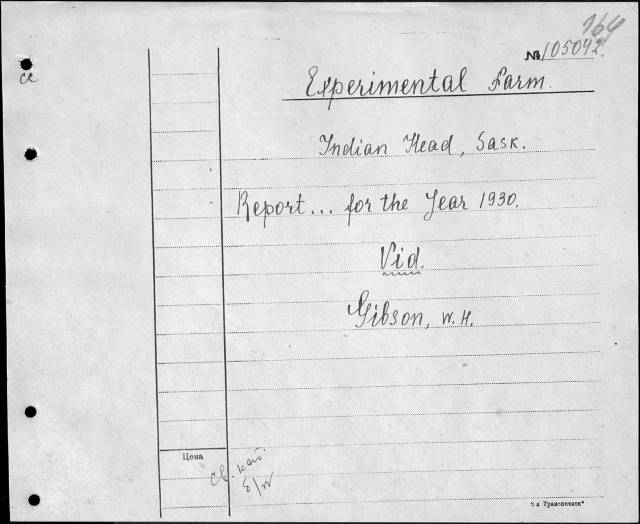 164
№ 105042.
се
Experimental Farm.
Indian Head, Sask.
Report... for the Year 1930.
Vid.
Gibson, W. H.
Цена
св. кат.
б/п
"я Транспечати"